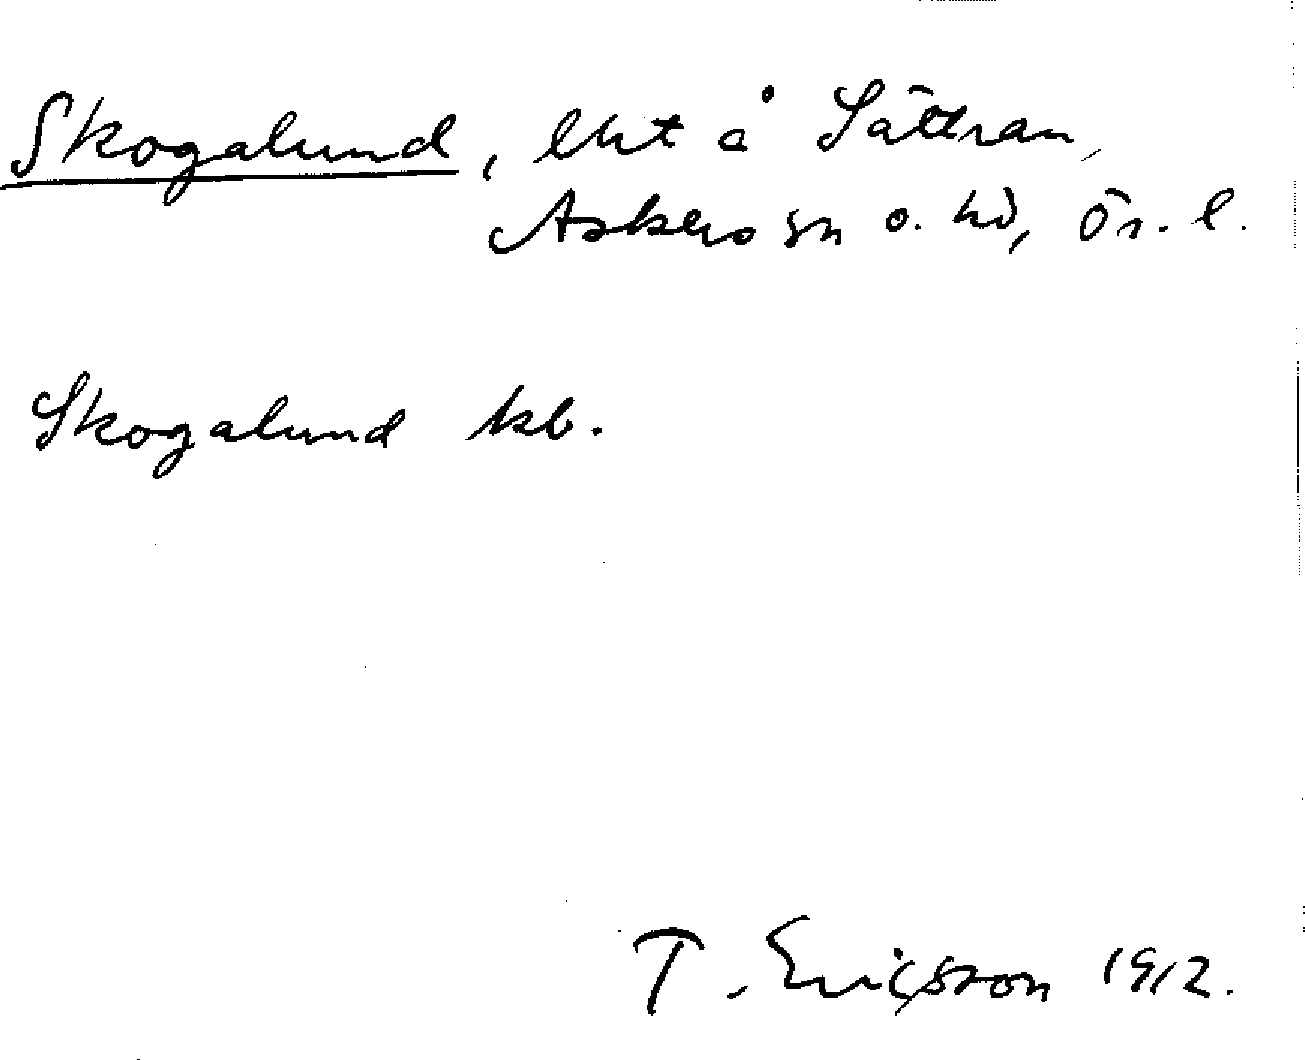 Skogalund, lht å Sättran,
Askers sn o. hd, Ör. l.
Skogalund kb.
T. Ericsson 1912.